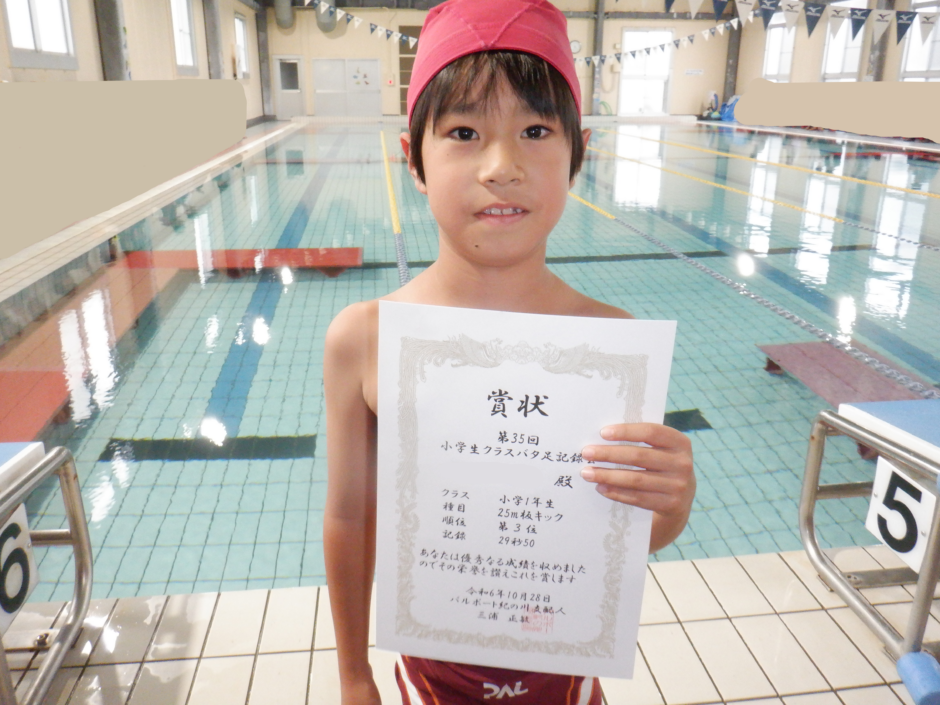 賞状
第35回
小学生クラスバタ足記録会
殿
クラス 小学1年生
種目 25m板キック
順位 第3位
記録 29秒50
あなたは優秀なる成績を収めました
のでその栄誉を讃えこれを賞します
令和6年10月28日
パルポート紀の川支配人
三浦 正敏
5
6